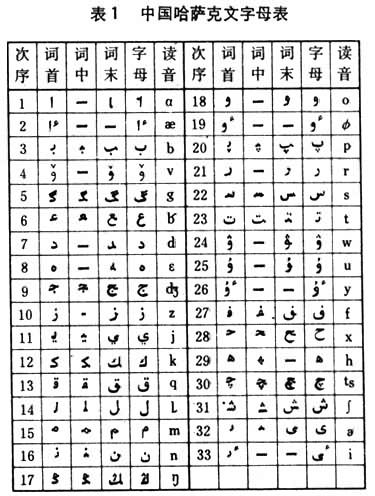 表1 中国哈萨克文字母表
次序 词首 词中 词末 字母 读音 次序 词首 词中 词末 字母 读音
1 ا — ـا ا ɑ 18 و — و و o
2 ٴا — — ٴا æ 19 ٴو — — ٴو ø
3 بـ ـبـ ـب ب b 20 پـ ـپـ ـپ پ p
4 ۆ — ۆ ۆ v 21 ر — ر ر r
5 گـ ـگـ ـگ گ g 22 سـ ـسـ س س s
6 عـ ـعـ ـع ع ʁ 23 ت ت ت ت t
7 د — ـد د d 24 ۋ — ۋ ۋ w
8 ە — ـە ە ɛ 25 ۇ — ۇ ۇ u
9 جـ ـجـ ـج ج ʤ 26 ٴۇ — — ٴۇ y
10 ز - ز ز z 27 فـ ـفـ ـف ف f
11 يـ ـيـ ـي ي j 28 حـ ـحـ ـح ح x
12 كـ ـكـ ـك ك k 29 ھ ھ — ھ h
13 قـ ـقـ ـق ق q 30 چـ ـچـ ـچ چ ts
14 لـ ـلـ ل ل l 31 شـ ـشـ ش ش ʃ
15 مـ ـمـ ـم م m 32 ىـ ـىـ ى ى ə
16 نـ ـنـ ـن ن n 33 — ٴى i
17 ڭـ ـڭـ ـڭ ڭ ŋ